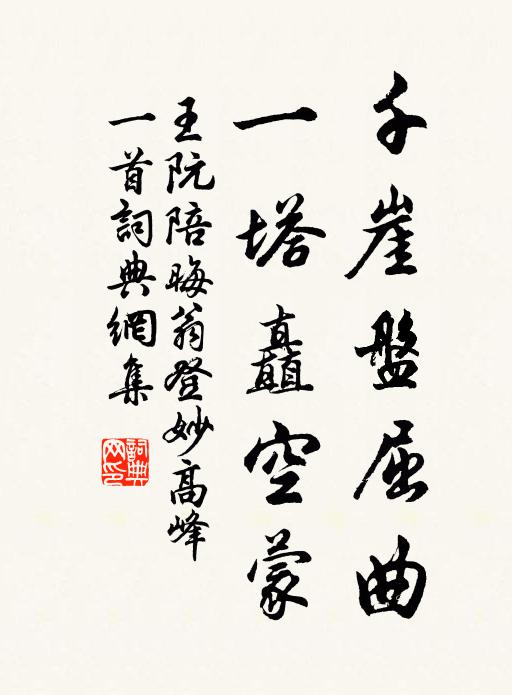 千崖盤屈曲
一塔矗空蒙
王阮陪晦翁登妙高峰
一首詞典網集
詞典
网印